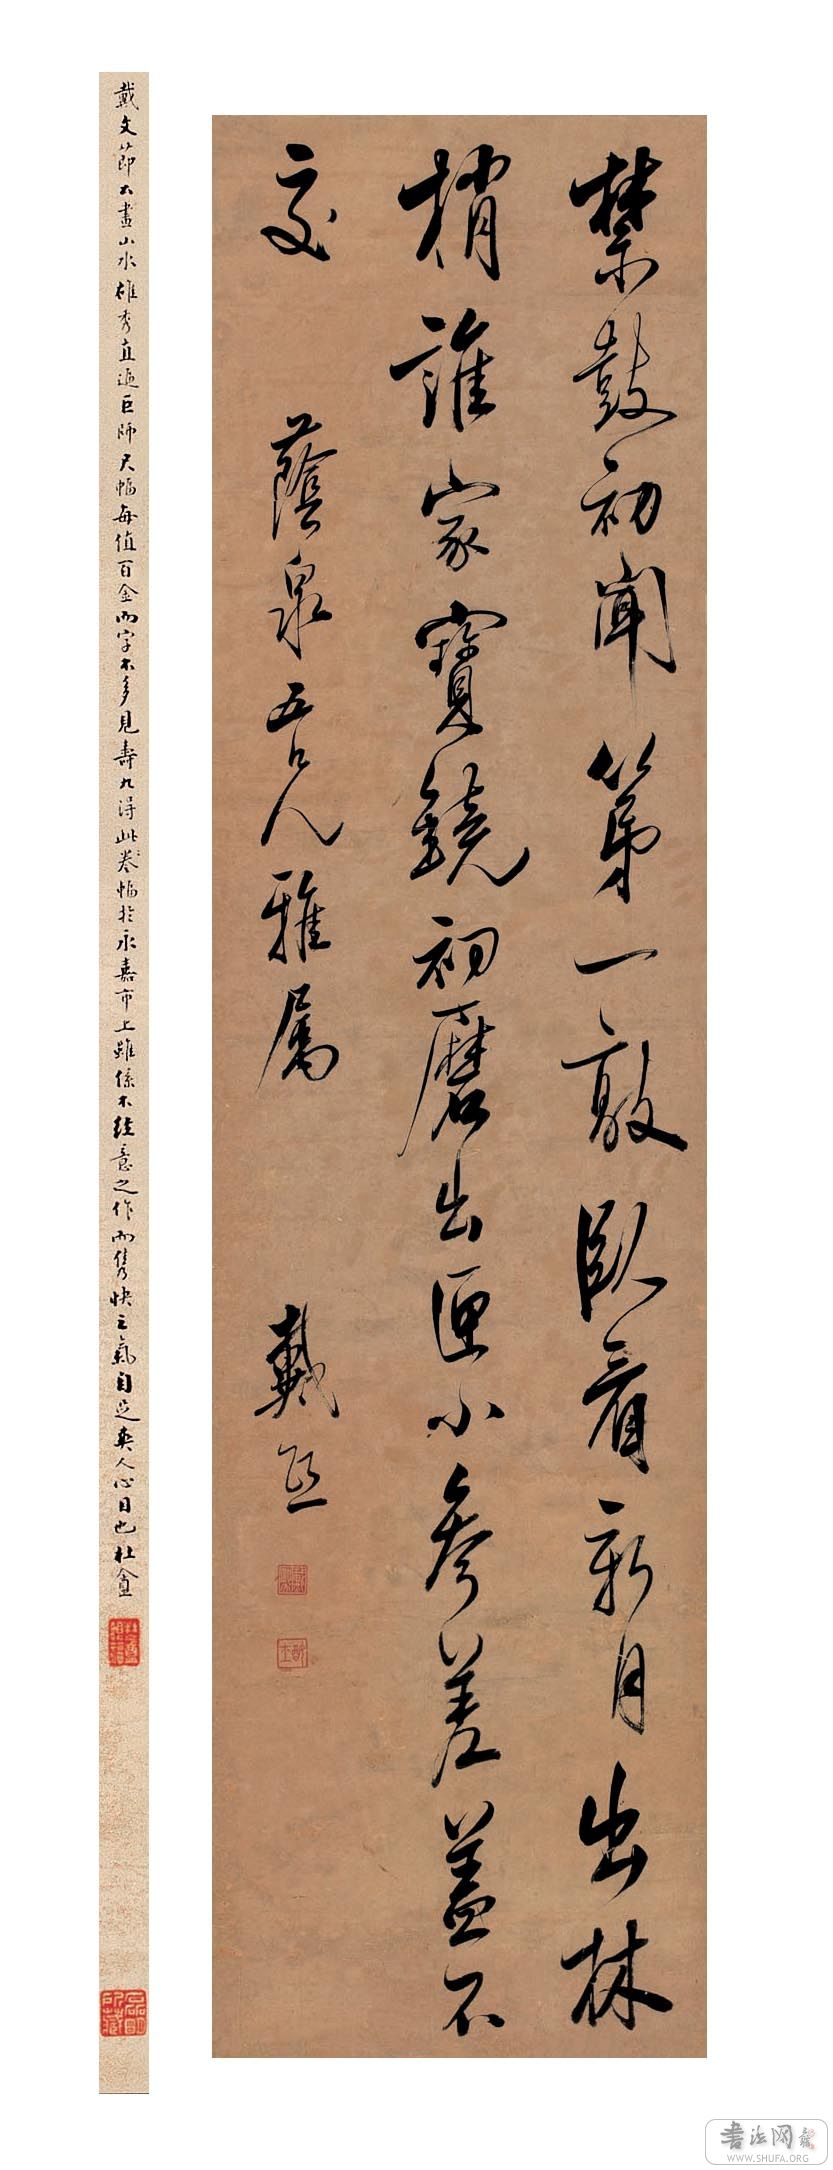 禁鼓初聞第一敲卧看新月出林
梢誰家寶鏡初磨出匣小參差蓋不
交
蔭泉五兄人雅属
戴熙
戴文節大畫山水雄秀直逼巨師尺幅每值百金而字不多見壽九得此卷幅於永嘉市上雖係不經意之作而雋快之氣自足爽人心目也杜盦
所藏
書法网
WWW.SHUFA.ORG